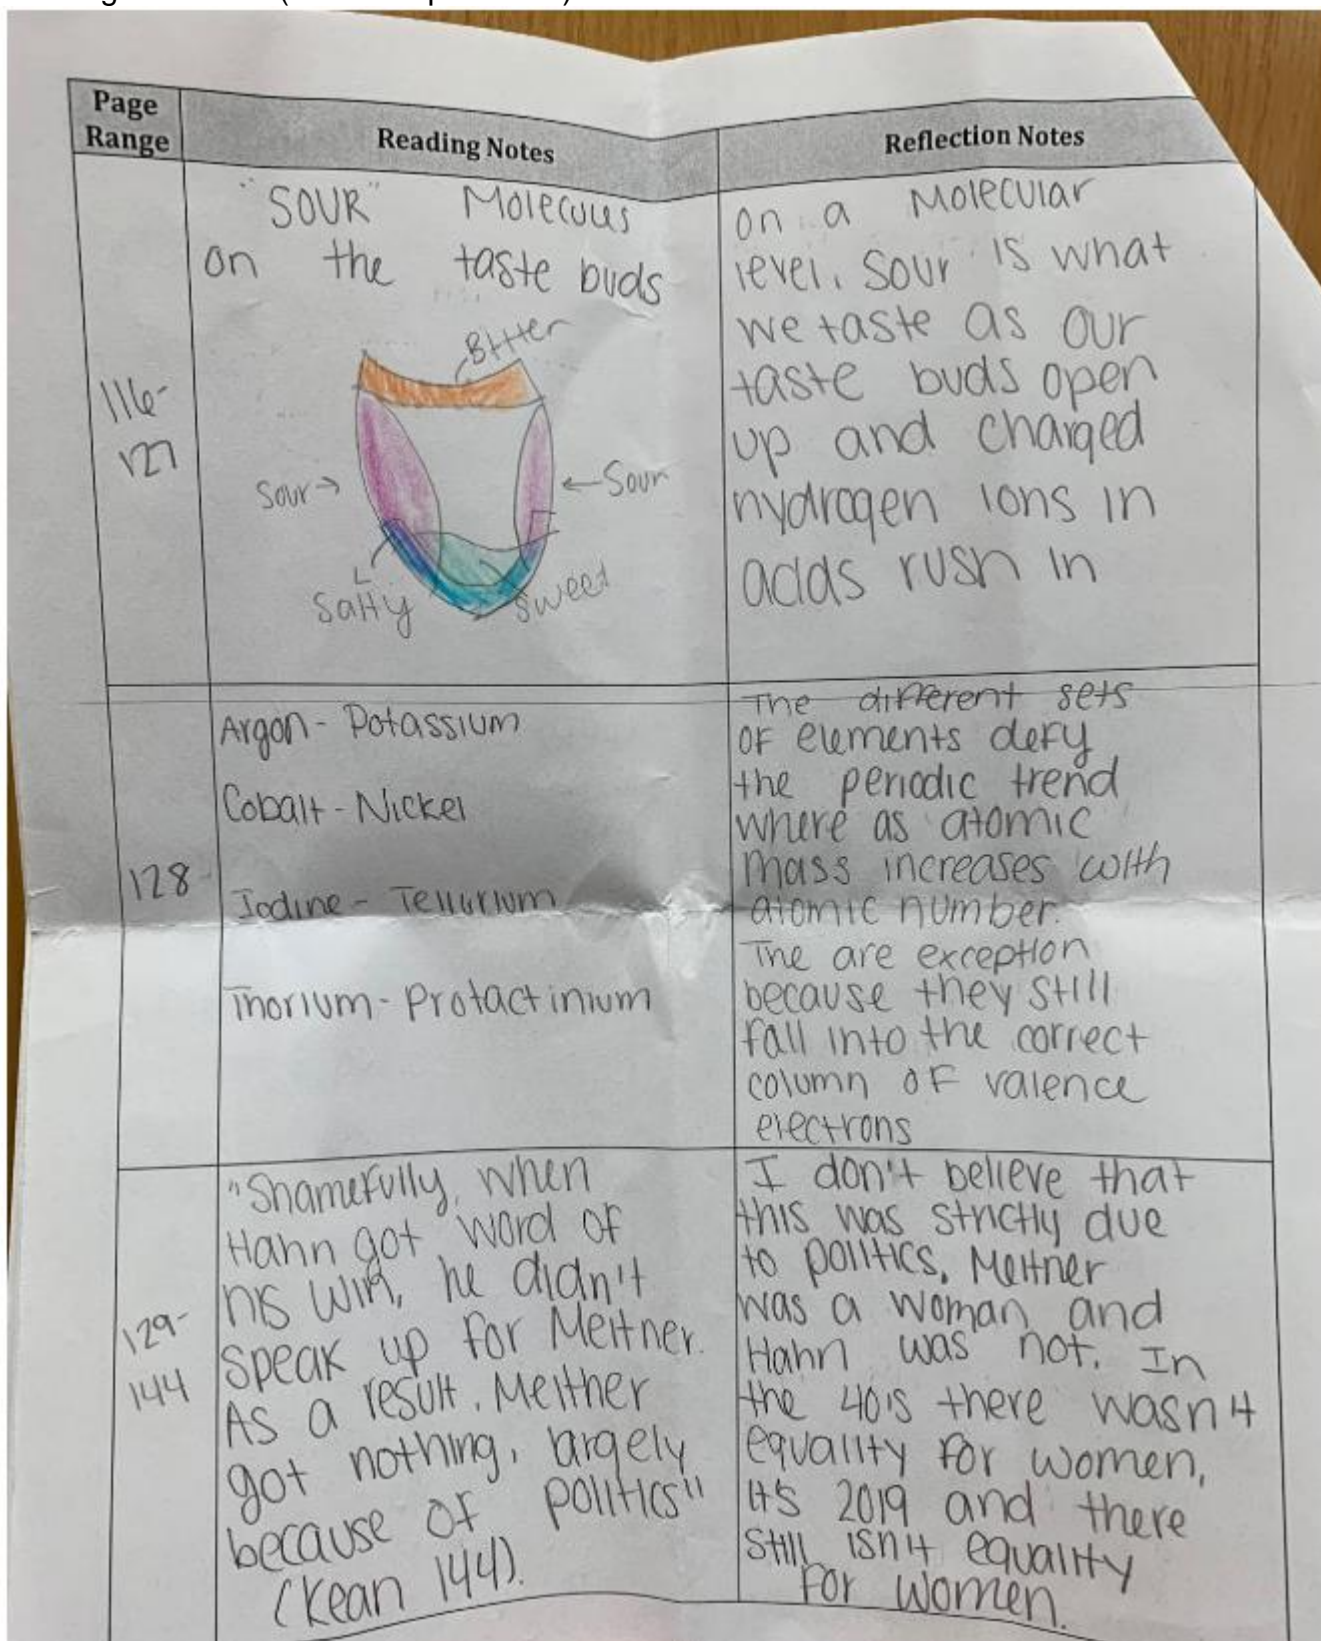 Page
Range
Reading Notes
Reflection Notes
116-
127
"SOUR" Molecules
on the taste buds
Bitter
Sour →
← Sour
Salty
Sweet
on a Molecular
level, Sour is what
we taste as our
taste buds open
up and charged
hydrogen ions in
acids rush in
128
Argon - Potassium
Cobalt - Nickel
Iodine - Tellurium
Thorium - Protactinium
The different sets
OF elements defy
the periodic trend
where as atomic
mass increases with
atomic number.
The are exception
because they still
fall into the correct
column OF valence
electrons
129-
144
"Shamefully, when
Hahn got word of
his win, he didn't
speak up for Meitner.
As a result, Meitner
got nothing, largely
because of politics"
(Kean 144).
I don't believe that
this was strictly due
to politics, Meitner
was a woman and
Hahn was not. In
the 40's there wasn't
equality for women,
it's 2019 and there
still isn't equality
for women.